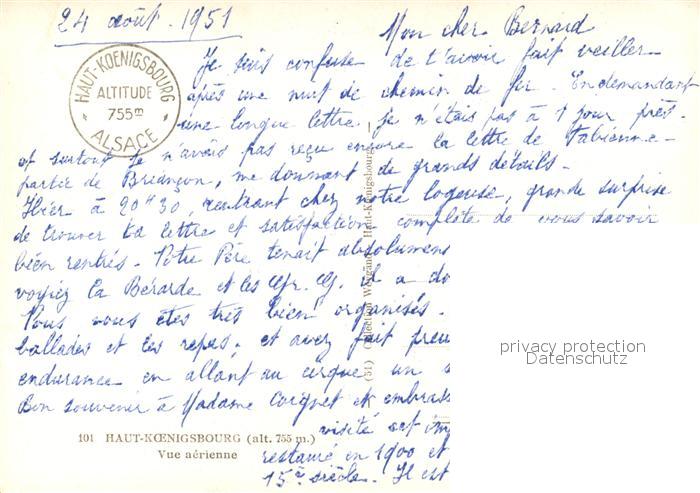 24 août . 1951
Mon cher Bernard
Je suis confuse de t'avoir fait veiller
après une nuit de chemin de fer. En demandant
une longue lettre, je n'étais pas à 1 jour près.
et surtout je n'avais pas reçu encore la lettre de Fabienne
partie de Briançon, me donnant de grands détails.
Hier à 20H30, rentrant chez notre logeuse, grande surprise
de trouver ta lettre et satisfaction complète de vous savoir
bien rentrés. Votre Père tenait absolumen
voyiez la Bérarde et les il a do
Vous vous êtes très bien organisés.
ballades et les repas, et avez fait preu
endurance en allant au cirque un
Bon souvenir à Madame Coignet et embras
visité est im
restauré en 1900 et
15e siècle. Il est
HAUT-KOENIGSBOURG
ALTITUDE
755m
ALSACE
(51) Collection Weygand, Haut-Kœnigsbourg
101 HAUT-KŒNIGSBOURG (alt. 755 m.)
Vue aérienne
privacy protection
Datenschutz